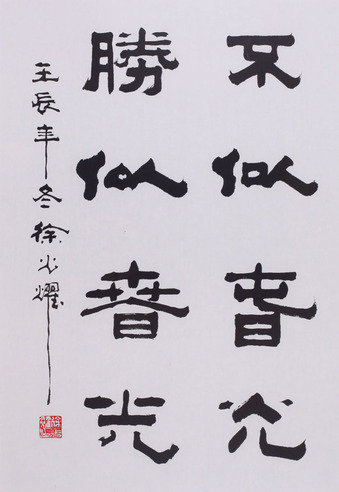 不似春光
勝似春光
壬辰年冬徐光耀